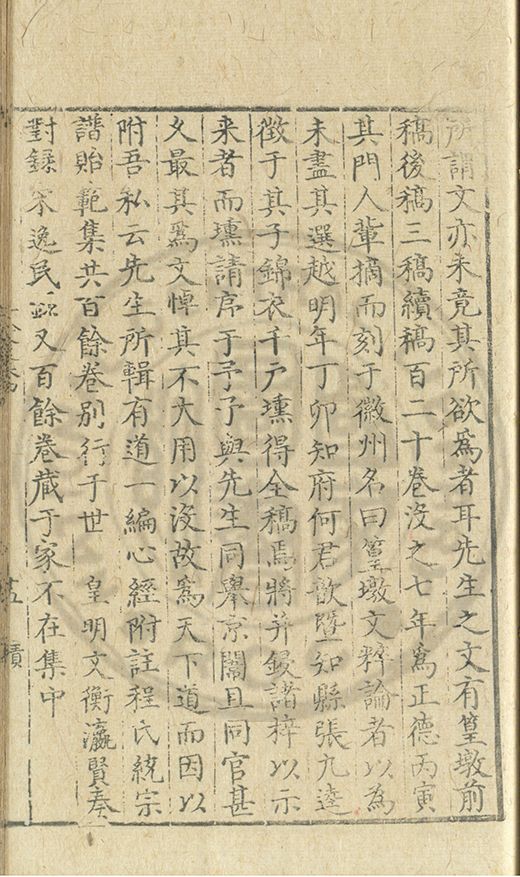 所謂文亦未竟其所欲爲者耳先生之文有篁墩前
稿後稿三稿續稿百二十卷沒之七年爲正德丙寅
其門人輩摘而刻于徽州名曰篁墩文粹論者以爲
未盡其選越明年丁卯知府何君歆暨知縣張九逵
徵于其子錦衣千戶壎得全稿焉將并鋟諸梓以示
来者而壎請序于予予與先生同舉京闈且同官甚
久最其爲文悼其不大用以沒故爲天下道而因以
附吾私云先生所輯有道一編心經附註程氏統宗
譜貽範集共百餘卷別行于世 皇明文衡瀛賢奏
對錄宋逸民錄又百餘卷藏于家不在集中